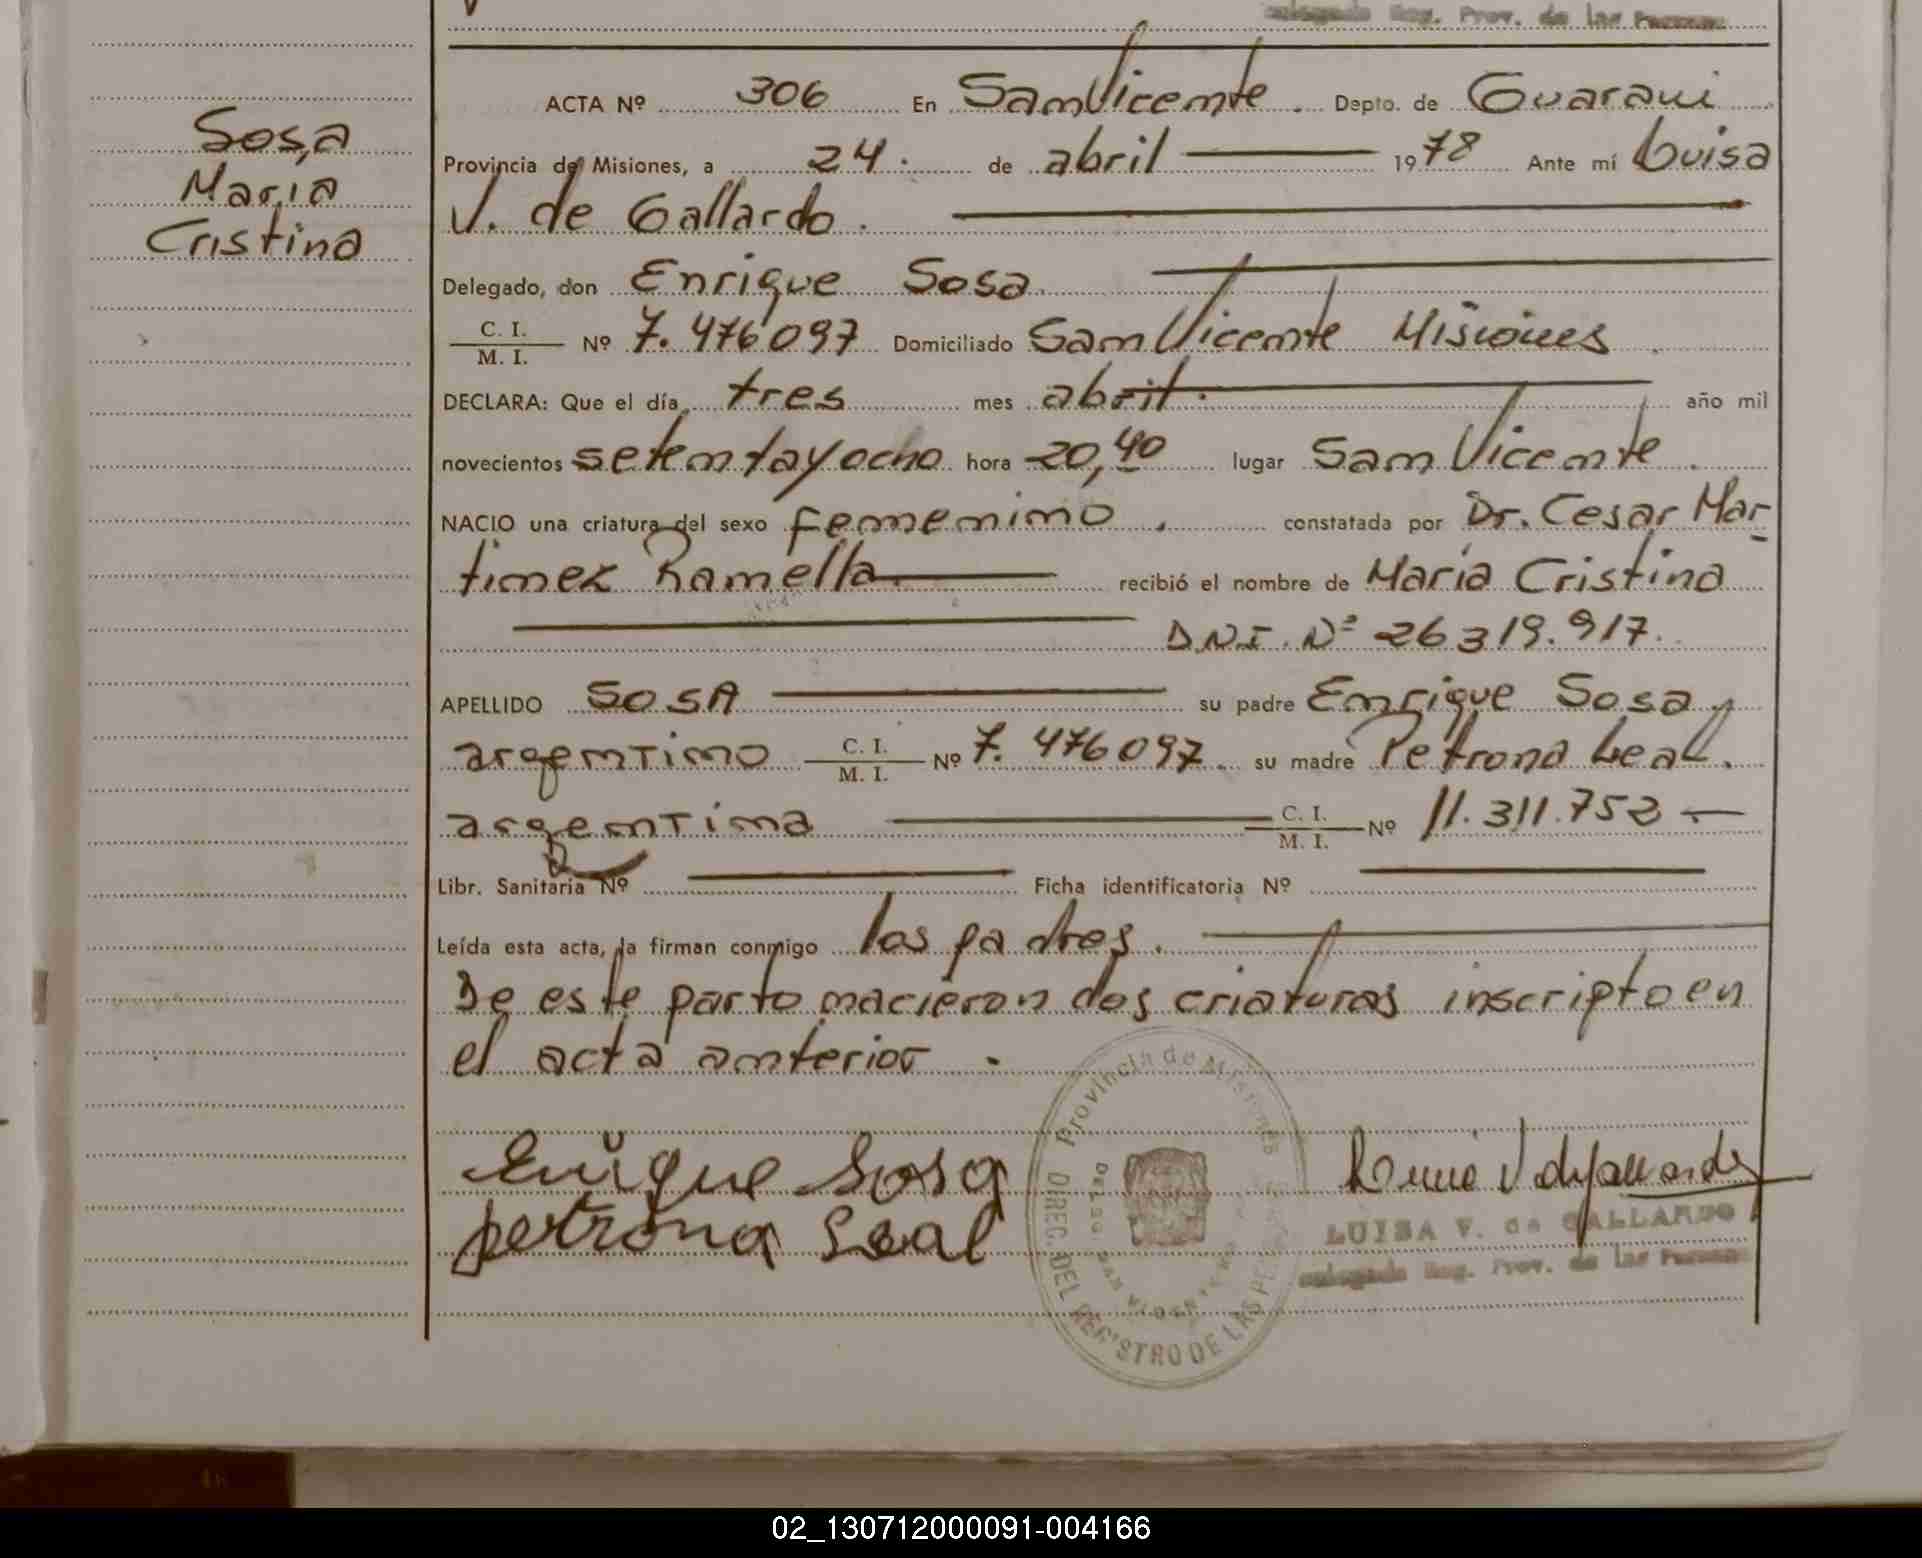 Delegado Reg. Prov. de las Personas
Sosa
Maria
Cristina
ACTA Nº 306 En San Vicente. Depto. de Guarani
Provincia de Misiones, a 24. de abril 1978 Ante mí Luisa
V. de Gallardo.
Delegado, don Enrique Sosa.
C. I.
M. I. Nº 7.476097 Domiciliado San Vicente Misiones.
DECLARA: Que el día tres mes abril. año mil
novecientos setentayocho hora 20,40 lugar San Vicente.
NACIO una criatura del sexo femenino. constatada por Dr. Cesar Mar-
tinez Ramella. recibió el nombre de María Cristina
D.N.I. Nº 26319.917.
APELLIDO SOSA su padre Enrique Sosa,
argentino C. I.
M. I. Nº 7.476097. su madre Petrona Leal.
argentina C. I.
M. I. Nº 11.311.752.-
Libr. Sanitaria Nº Ficha identificatoria Nº
Leída esta acta, la firman conmigo los padres.
De este parto nacieron dos criaturas inscripto en
el acta anterior.
Enrique Sosa
petrona Leal
Provincia de Misiones
DIREC. DEL REGISTRO DE LAS PERSONAS
DELEG. SAN VICENTE
LUISA V. de GALLARDO
Delegado Reg. Prov. de las Personas
02_130712000091-004166